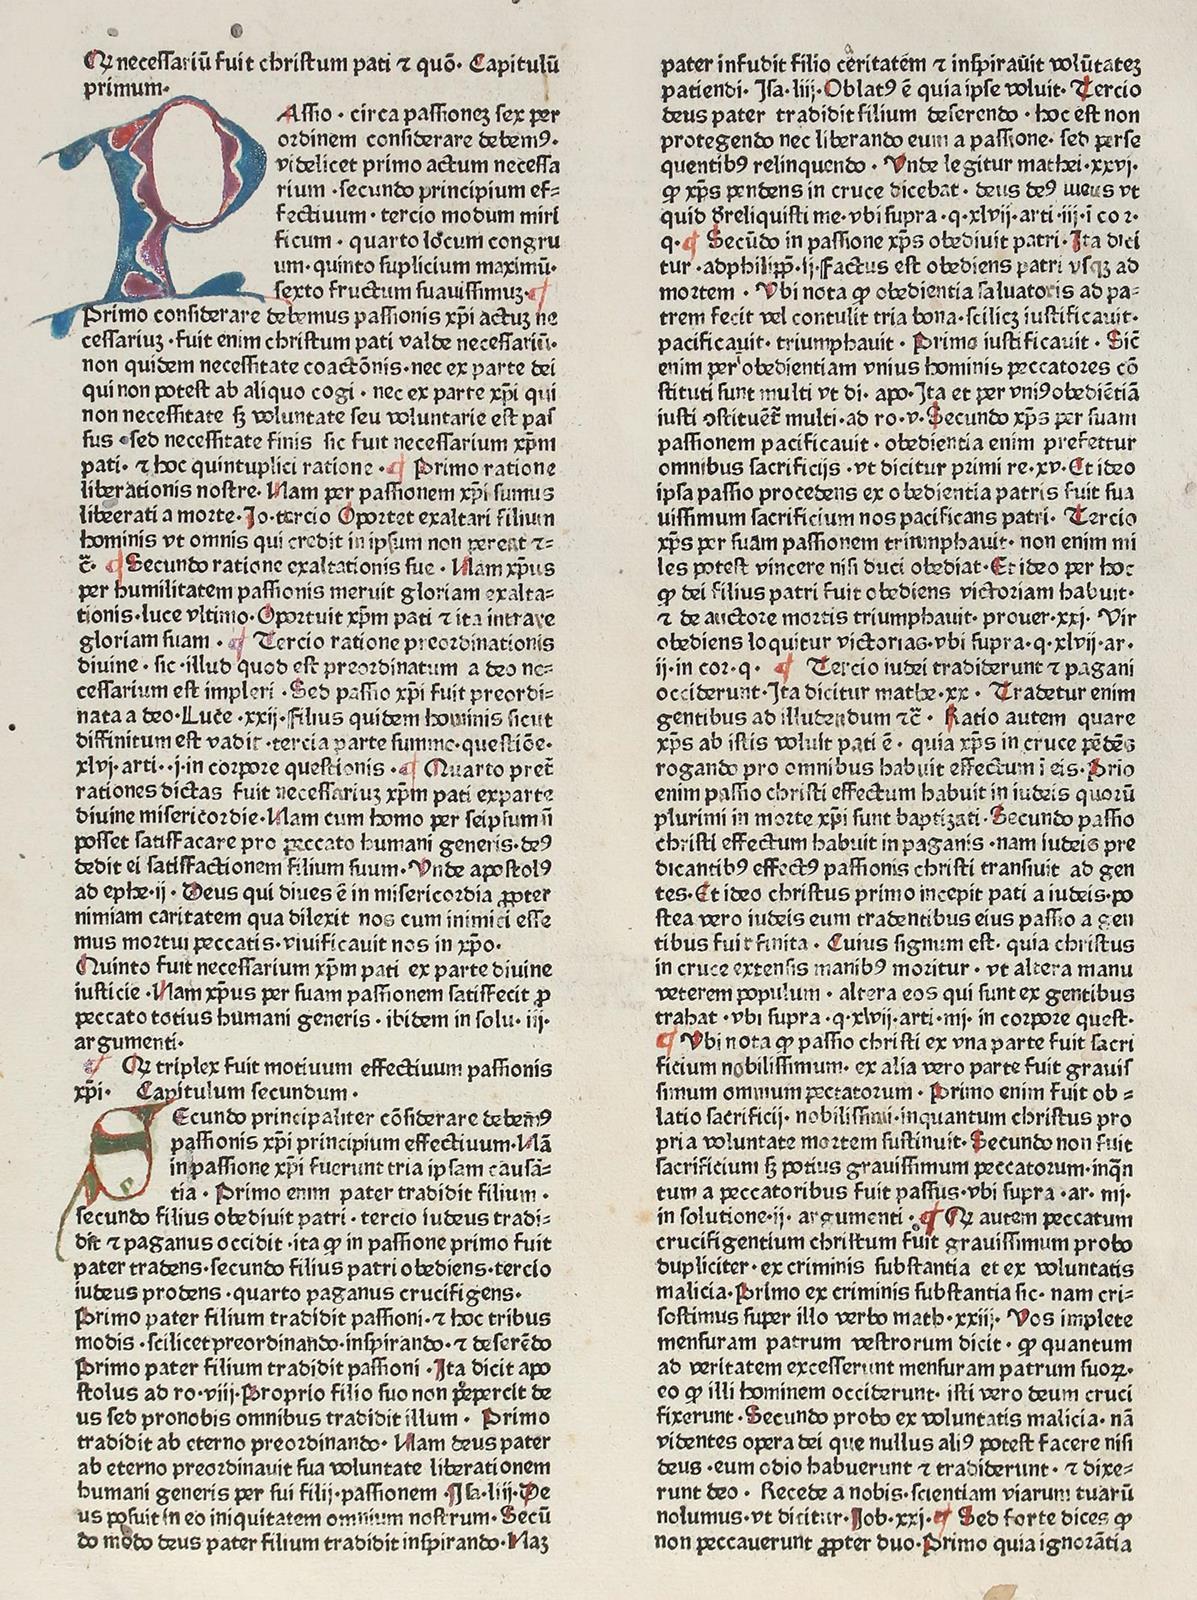 Qꝫ necessariū fuit christum pati ⁊ quō. Capitulū
primum.
PAssio. circa passionez sex per
ordinem considerare debem⁹.
videlicet primo actum necessa
rium. secundo principium ef=
fectiuum. tercio modum miri
ficum. quarto locum congru
um. quinto suplicium maximū.
sexto fructum suauissimuz. ¶
Primo considerare debemus passionis xp̄i actuz ne
cessariuz. fuit enim christum pati valde necessariū.
non quidem necessitate coactōnis. nec ex parte dei
qui non potest ab aliquo cogi. nec ex parte xp̄i qui
non necessitate sꝫ voluntate seu voluntarie est pas
sus. sed necessitate finis sic fuit necessarium xp̄m
pati. ⁊ hoc quintuplici ratione. ¶ Primo ratione
liberationis nostre. Nam per passionem xp̄i sumus
libeerati a morte. Jo. tercio Oportet exaltari filium
hominis vt omnis qui credit in ipsum non pereat ⁊-
c̄. ¶ Secundo ratione exaltationis sue. Nam xp̄us
per humilitatem passionis meruit gloriam exalta=
tionis. luce vltimo. Oportuit xp̄m pati ⁊ ita intrare
gloriam suam. ¶ Tercio ratione preordinationis
diuine. sic. illud quod est preordinatum a deo ne=
cessarium est impleri. Sed passio xp̄i fuit preordi=
nata a deo. Luce. xxij. filius quidem hominis sicut
diffinitum est vadit. tercia parte summe. questiōe.
xlvj. arti..j. in corpore questionis. ¶ Quarto pret̄
rationes dictas fuit necessariuz xp̄m pati exparte
diuine misericordie. Nam cum homo per seipsum ū
posset satisfacare pro peccato humani generis. de⁹
dedit ei satisfactionem filium suum. Vnde apostol⁹
ad ephe. ij. Deus qui diues ē in misericordia ꝓpter
nimiam caritatem qua dilexit nos cum inimici esse
mus mortui peccatis. viuificauit nos in xp̄o.
Quinto fuit necessarium xp̄m pati ex parte diuine
iusticie. Nam xp̄us per suam passionem satisfecit ꝓ
peccato totius humani generis. ibidem in solu. iij.
argumenti.
¶ Qꝫ triplex fuit motiuum effectiuum passionis
xp̄i. Capitulum secundum.
SEcundo principaliter cōsiderare debem⁹
passionis xp̄i principium effectiuum. Nā
in passione xp̄i fuerunt tria ipsam causā=
tia. Primo enim pater tradidit filium.
secundo filius obediuit patri. tercio iudeus tradi=
dit ⁊ paganus occidit. ita ꝙ in passione primo fuit
pater tradens. secundo filius patri obediens. tercio
iudeus prodens. quarto paganus crucifigens.
Primo pater filium tradidit passioni. ⁊ hoc tribus
modis. scilicet preordinando. inspirando. ⁊ deserēdo
Primo pater filium tradidit passioni. Ita dicit apo
stolus ad ro. viij. Proprio filio suo non pepercit de
us sed pronobis omnibus tradidit illum. Primo
tradidit ab eterno preordinando. Nam deus pater
ab eterno preordinauit sua voluntate liberationem
humani generis per sui filij. passionem. Isa. liij. De
us posuit in eo iniquitatem omnium nostrum. Secū
do modo deus pater filium tradidit inspirando. Naz
pater infudit filio ceritatem ⁊ inspirauit volūtatez
patiendi. Isa. liij. Oblat⁹ ē quia ipse voluit. Tercio
deus pater tradidit filium deserendo. hoc est non
protegendo nec liberando eum a passione. sed perse
quentib⁹ relinquendo. Vnde legitur mathei. xxvj.
ꝙ xp̄s pendens in cruce dicebat. deus de⁹ meus vt
quid dreliquisti me. vbi supra. q. xlvij. arti. iij. ī cor.
q. ¶ Secūdo in passione xp̄s obediuit patri. Ita dici
tur. adphilipp̄. ij. Factus est obediens patri vsqꝫ ad
mortem. Vbi nota ꝙ obedientia saluatoris ad pa=
trem fecit vel contulit tria bona. scilicꝫ iustificauit.
pacificauit. triumphauit. Primo iustificauit. Sic̄
enim per obedientiam vnius hominis peccatores cō
stituti sunt multi vt di. apo. Ita et per vni⁹ obediētiā
iusti ↄstituēt̄ multi. ad ro. v. Secundo xp̄s per suam
passionem pacificauit. obedientia enim prefertur
omnibus sacrificijs. vt dicitur primi re. xv. Et ideo
ipsa passio procedens ex obedientia patris fuit sua
uissimum sacrificium nos pacificans patri. Tercio
xp̄s per suam passionem triumphauit. non enim mi
les potest vincere nisi duci obediat. Et ideo per hoc
ꝙ dei filius patri fuit obediens victoriam habuit.
⁊ de auctore mortis triumphauit. prouer. xxj. Vir
obediens loquitur victorias. vbi supra. q. xlvij. ar.
ij. in cor. q. ¶ Tercio iudei tradiderunt ⁊ pagani
occiderunt. Ita dicitur mathe. xx. Tradetur enim
gentibus ad illudendum ⁊c̄. Ratio autem quare
xp̄s ab istis voluit pati ē. quia xp̄s in cruce pēdēs
rogando pro omnibus habuit effectum ī eis. Prīo
enim passio christi effectum habuit in iudeis quorū
plurimi in morte xp̄i sunt baptizati. Secundo passio
christi effectum habuit in paganis. nam iudeis pre
dicantib⁹ effect⁹ passionis christi transiuit ad gen
tes. Et ideo christus primo incepit pati a iudeis. po
stea vero iudeis eum tradentibus eius passio a gen
tibus fuit finita. Cuius signum est. quia christus
in cruce extensis manib⁹ moritur. vt altera manu
veterem populum. altera eos qui sunt ex gentibus
trahat. vbi supra. q. xlvij. arti. iiij. in corpore quest.
¶ Vbi nota ꝙ passio christi ex vna parte fuit sacri
ficium nobilissimum. ex alia vero parte fuit grauis
simum omnium peccatorum. Primo enim fuit ob=
latio sacrificij. nobilissimi. inquantum christus pro
pria voluntate mortem sustinuit. Secundo non fuit
sacrificium sꝫ potius grauissimum peccatorum. inqn̄
tum a peccatoribus fuit passus. vbi supra. ar. iiij.
in solutione. ij. argumenti. ¶ Qꝫ autem peccatum
crucifigentium christum fuit grauissimum probo
dupliciter. ex criminis substantia et ex voluntatis
malicia. Primo ex criminis substantia sic. nam cri=
sostimus super illo verbo math. xxiij. Vos implete
mensuram patrum vestrorum dicit. ꝙ quantum
ad veritatem excesserunt mensuram patrum suoꝝ.
eo ꝙ illi hominem occiderunt. isti vero deum cruci
fixerunt. Secundo probo ex voluntatis malicia. nā
videntes opera dei que nullus ali⁹ potest facere nisi
deus. eum odio habuerunt ⁊ tradiderunt. ⁊ dixe=
runt deo. Recede a nobis. scientiam viarum tuarū
nolumus. vt dicitur. Job. xxj. ¶ Sed forte dices ꝙ
non peccauerunt ꝓpter duo. Primo quia ignorātia